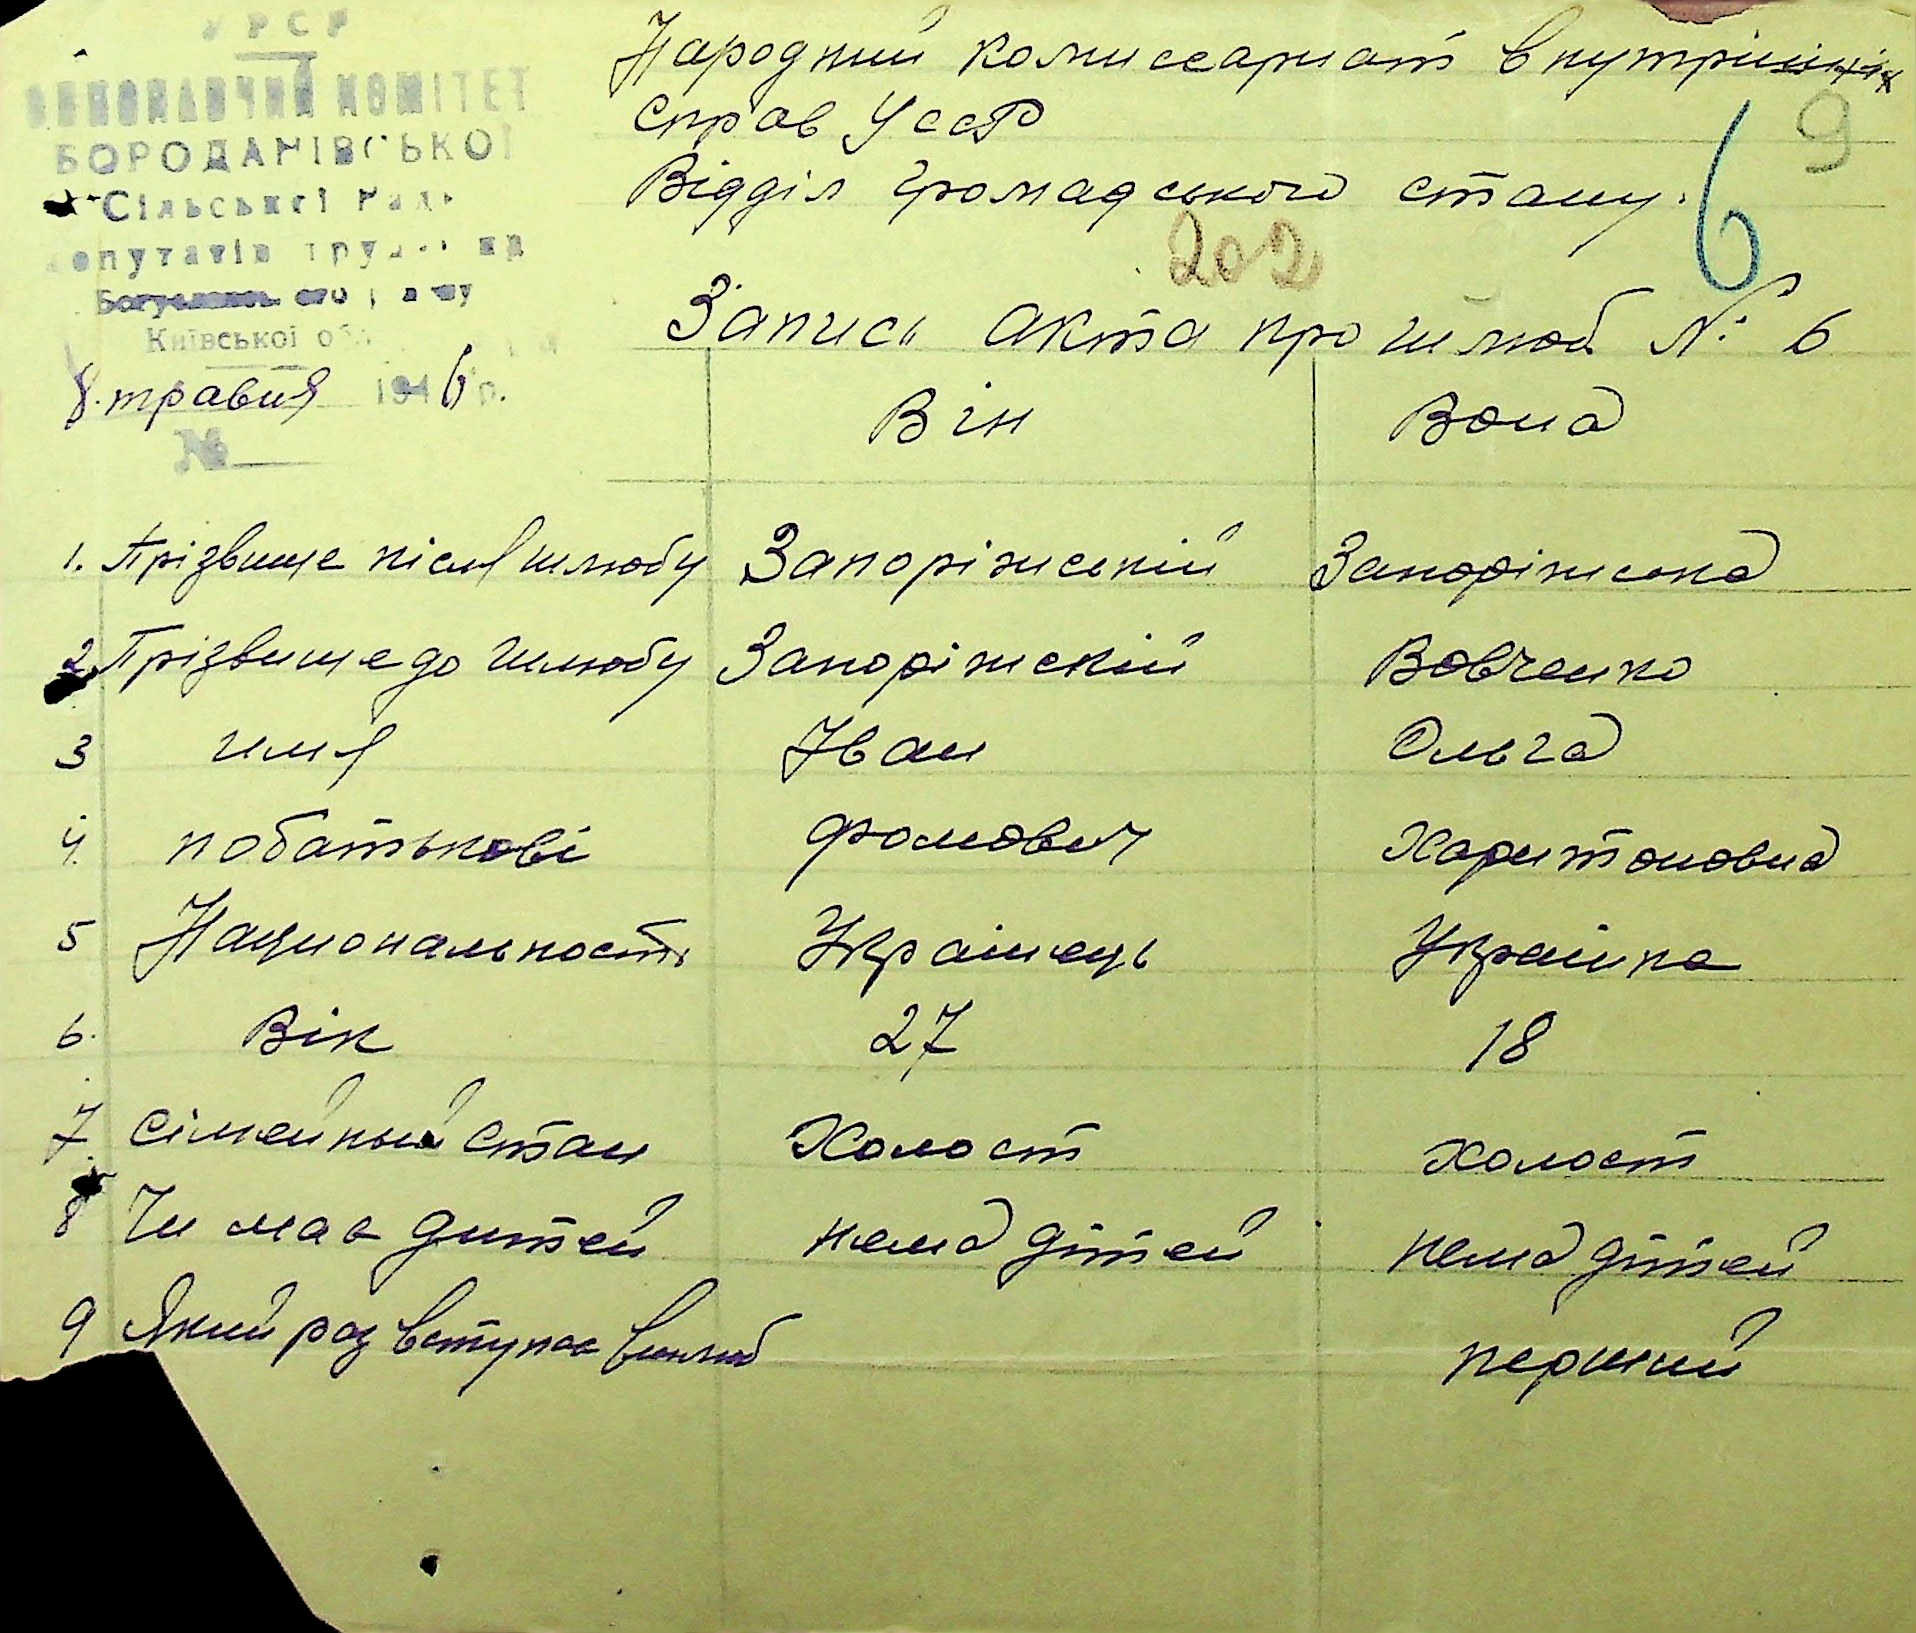 УРСР
ВИКОНАВЧИЙ КОМІТЕТ
БОРОДАНІВСЬКОЇ
Сільської Рад
депутатів труд
Київської обл
8. травня 1946 р.
№
Народний комиссариат внутрішніх
справ УССР
Відділ громадського стану.
9
6
202
Запись акта про шлюб №: 6
Він Вона
1. Прізвище після шлюбу Запоріжський Запоріжська
2. Прізвище до шлюбу Запоріжский Вовченко
3 имя Іван Ольга
4. побатькові Фомович Харитоновна
5 Национальность Українець Українка
6. Вік 27 18
7. Сімейный стан Холост холост
8 Чи має дитей нема дітей нема дітей
9 Який раз вступає в шлюб перший